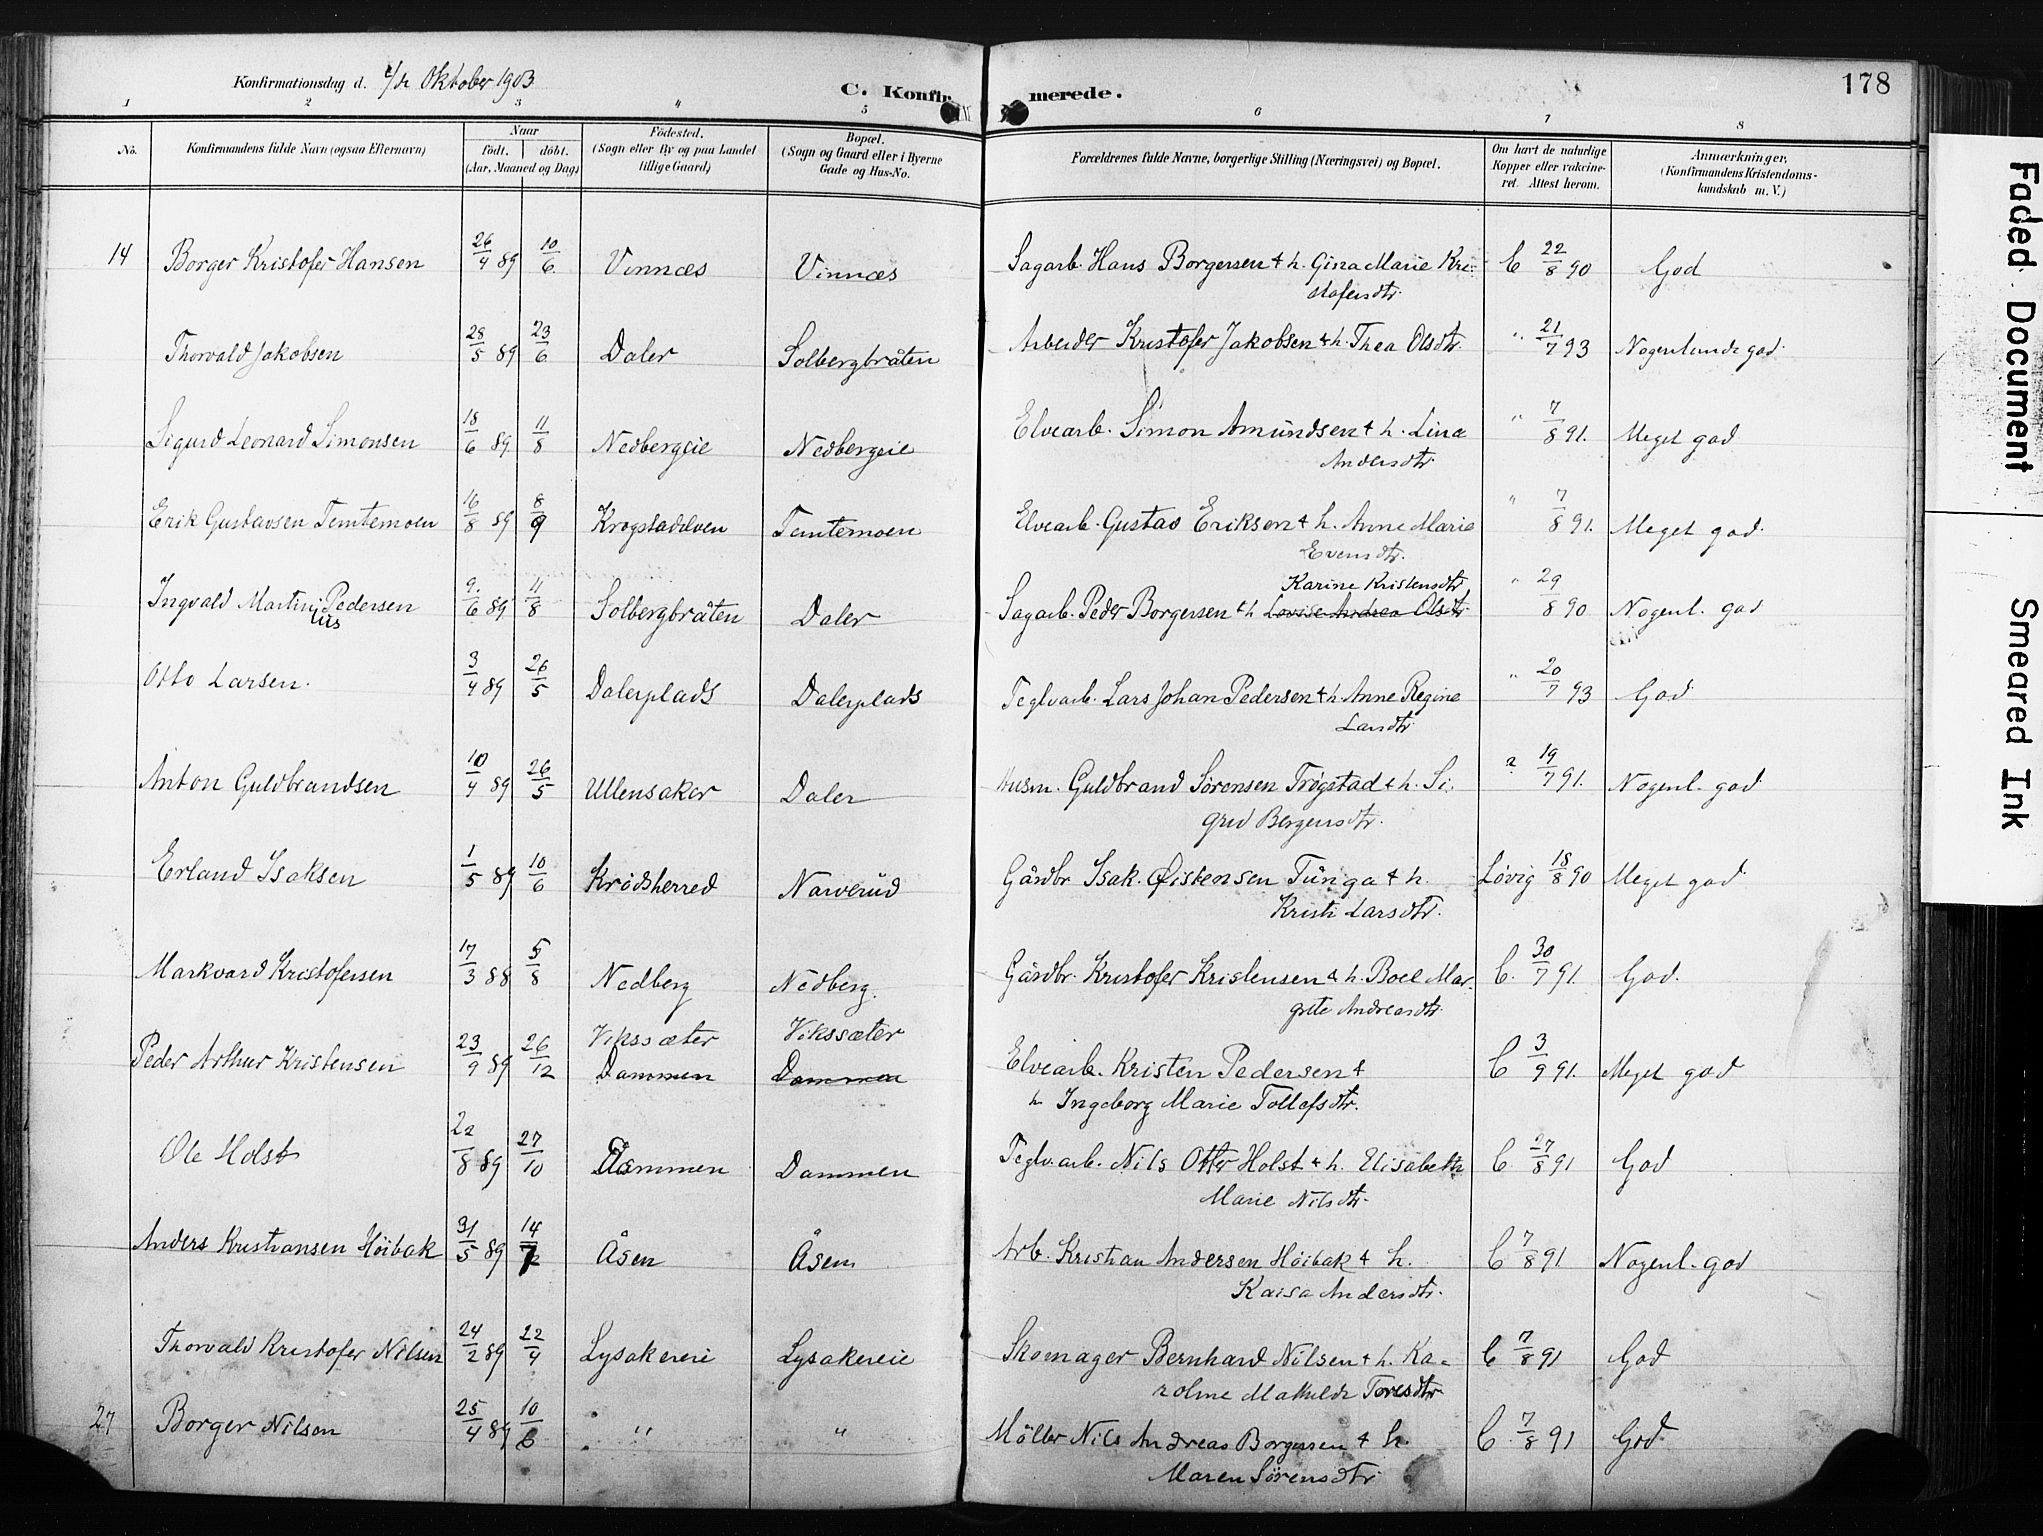 Konfirmationsdag d. 4/10 Oktober 1903
C. Konfirmerede.
178
1 2 3 4 5 6 7 8
No.
Konfirmandens fulde Navn (ogsaa Efternavn)
Naar
født. døbt.
(Aar, Maaned og Dag)
Fødested.
(Sogn eller By og paa Landet
tillige Gaard)
Bopæl.
(Sogn og Gaard eller i Byerne
Gade og Hus-No.
Forældrenes fulde Navne, borgerlige Stilling (Næringsvei) og Bopæl.
Om havt de naturlige
Kopper eller vakcine-
ret. Attest herom.
Anmærkninger,
(Konfirmandens Kristendoms-
kundskab m. V.)
14 Borger Kristofer Hansen 26/4 89 10/6 Vinnæs Vinnæs Sagarb. Hans Borgersen & h. Gina Marie Kri- C 22/8 90 God
stofersdtr.
Thorvald Jakobsen 28/5 89 23/6 Daler Solbergbråten Arbeider Kristofer Jakobsen & h. Thea Olsdtr. " 21/7 93 Nogenlunde god.
Sigurd Leonard Simonsen 18/6 89 11/8 Nedbergeie Nedbergeie Elvearb. Simon Amundsen & h. Lina " 7/8 91. Meget god
Andersdtr.
Erik Gustavsen Temtemoen 16/8 89 8/9 Krogstadelven Temtemoen Elvearb. Gustav Eriksen & h. Anne Marie " 7/8 91. Meget god.
Evensdtr.
Karine Kristensdtr.
Ingvald Martinius Pedersen 9/6 89 11/8 Solbergbråten Daler Sagarb. Peder Borgersen & h Lovise Andrea Olsdtr. " 29/8 90 Nogenl. god
Otto Larsen. 3/4 89 26/5 Dalerplads Dalerplads Teglvarb. Lars Johan Pedersen & h. Anne Regine " 20/7 93 God
Larsdtr.
Anton Guldbrandsen 10/4 89 26/5 Ullensaker Daler Husm. Guldbrand Sörensen Trögstad & h. Si- ? 19/7 91. Nogenl. god
grid Bergersdtr.
Erland Isaksen 1/5 89 10/6 Krødsherred Narverud Gårdbr Isak Øistensen Tunga & h. Løvig 18/8 90 Meget god
Kristi Larsdtr.
Markvard Kristofersen 17/3 88 5/8 Nedberg Nedberg. Gårdbr. Kristofer Kristensen & h. Boel Mar- C. 30/7 91. God.
grete Andreasdtr.
Vikssæter Vikssæter
Peder Arthur Kristensen 23/9 89 26/12 Dammen Dammen Elvearb. Kristen Pedersen & C 3/9 91. Meget god
h Ingeborg Marie Tollefsdtr.
Ole Holst 22/8 89 27/10 Dammen Dammen Teglv.arb. Nils Otter Holst & h. Elisabeth C. 27/8 91 God
Marie Nilsdtr.
Anders Kristiansen Höibak 31/5 89 14/7 Åsen Åsen Arb. Kristian Andersen Höibak & h. C 7/8 91 Nogenl. god
Kaisa Andersdtr.
Thorvald Kristofer Nilsen 24/2 89 22/4 Lysakereie Lysakereie Skomager Bernhard Nilsen & h. Ka- C 7/8 91 God
roline Mathilde Toresdtr
27 Borger Nilsen 25/4 89 10/6 " " Möller Nils Andreas Borgersen & h. C. 7/8 91 God
Maren Sörensdtr.
Faded Document
Smeared Ink